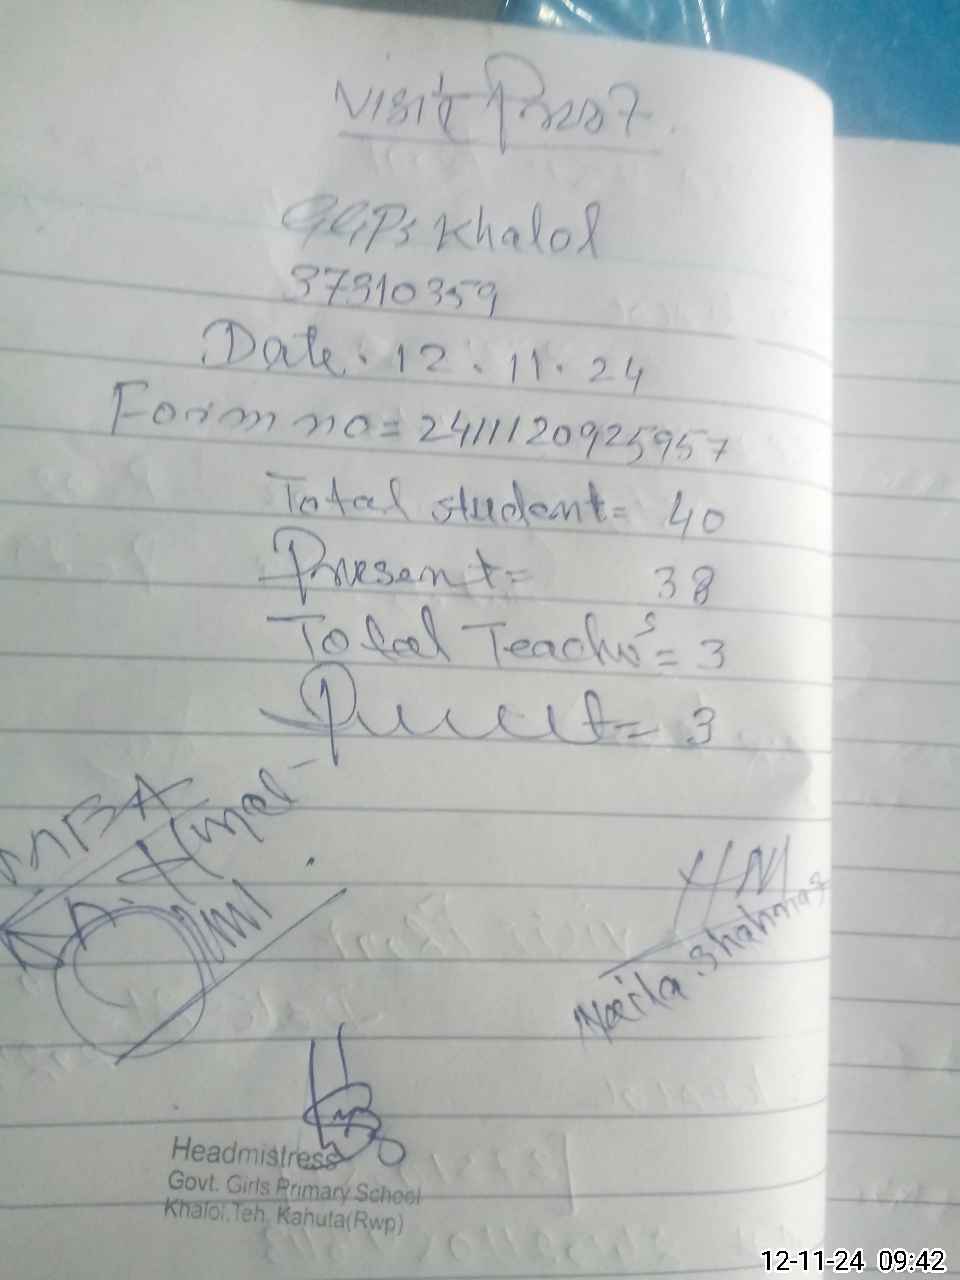 Visit Proof
GGPS Khalol
37310359
Date. 12.11.24
Form no = 2411120925957
Total student = 40
Present = 38
Total Teachers = 3
Present = 3
HM
Naila Shahnaz
Headmistress
Govt. Girls Primary School
Khalol.Teh. Kahuta(Rwp)
12-11-24 09:42